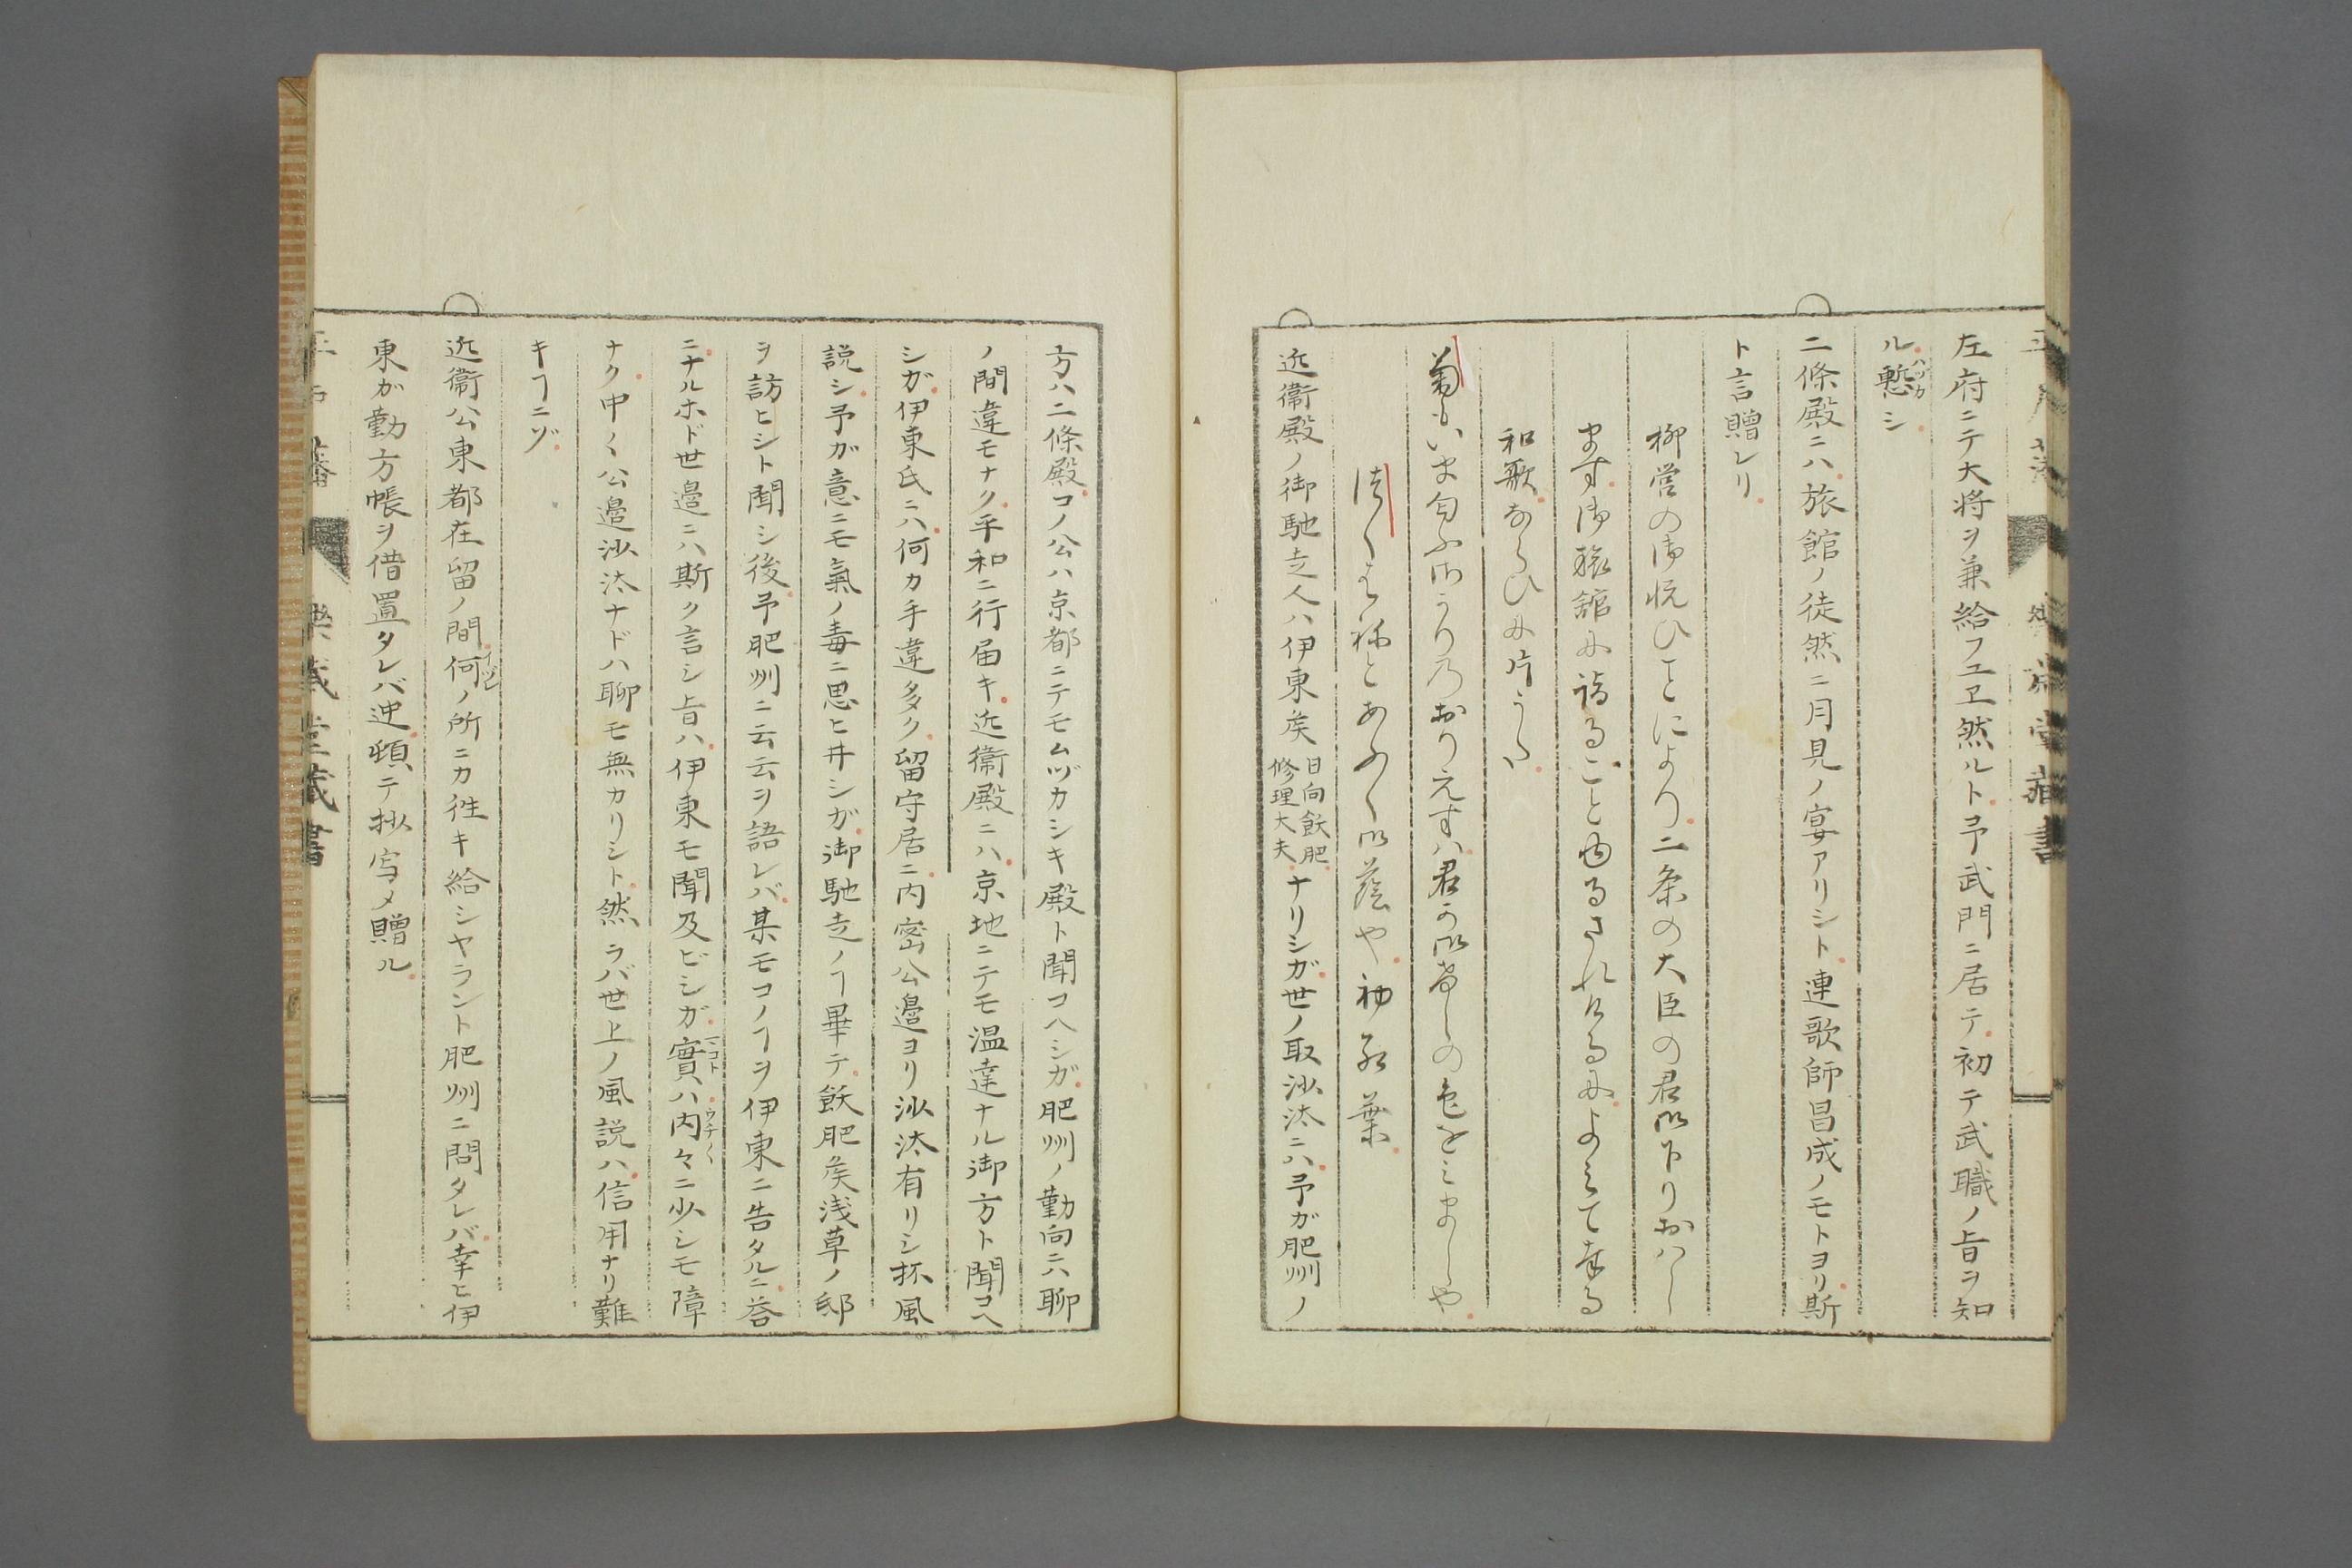 左府ニテ大将ヲ兼給フユヱ然ルト予武門ニ居テ初テ武職ノ旨ヲ知
ル慙シ
ハヅカ
二條殿ニハ旅館ノ徒然ニ月見ノ宴アリシト連歌師昌成ノモトヨリ斯
ト言贈レリ
柳営の御悦ひことによりニ条の大臣の君御下りおハし
ます御旅舘に詣ることゆるされけるによミて奉る
和歌ならひに片うた
菊もいま匂ふ
君か御
の色をミましや
御蔭や初紅葉
近衞殿ノ御馳走人ハ伊東矦
日向飫肥
修理大夫
ナリシガ世ノ取沙汰ニハ予ガ肥州ノ
方ハ二條殿コノ公ハ京都ニテモムヅカシキ殿ト聞コヘシガ肥州ノ勤向ニハ聊
ノ間違モナク平和ニ行届キ近衞殿ニハ京地ニテモ温達ナル御方ト聞コヘ
シガ伊東氏ニハ何カ手違多ク留守居ニ内密公邉ヨリ沙汰有リシ抔風
説シ予ガ意ニモ氣ノ毒ニ思ヒ井シガ御馳走ノヿ畢テ飫肥矦浅草ノ邸
ヲ訪ヒシト聞シ後予肥州ニ云云ヲ語レバ某モコノヿヲ伊東ニ告タルニ荅
ニナルホド世邉ニハ斯ク言シ旨ハ伊東モ聞及ビシガ實ハ内々ニ少シモ障
マコト
ウチ〱
ナク中〱公邉沙汰ナドハ聊モ無カリシト然ラバ世上ノ風説ハ信用ナリ難
キヿニゾ
近衞公東都在留ノ間何ノ所ニカ徃キ給シヤラント肥州ニ問タレバ幸ヒ伊
イヅレ
東ガ勤方帳ヲ借置タレバ迚頓テ抄写〆贈ル
樂歳堂藏書